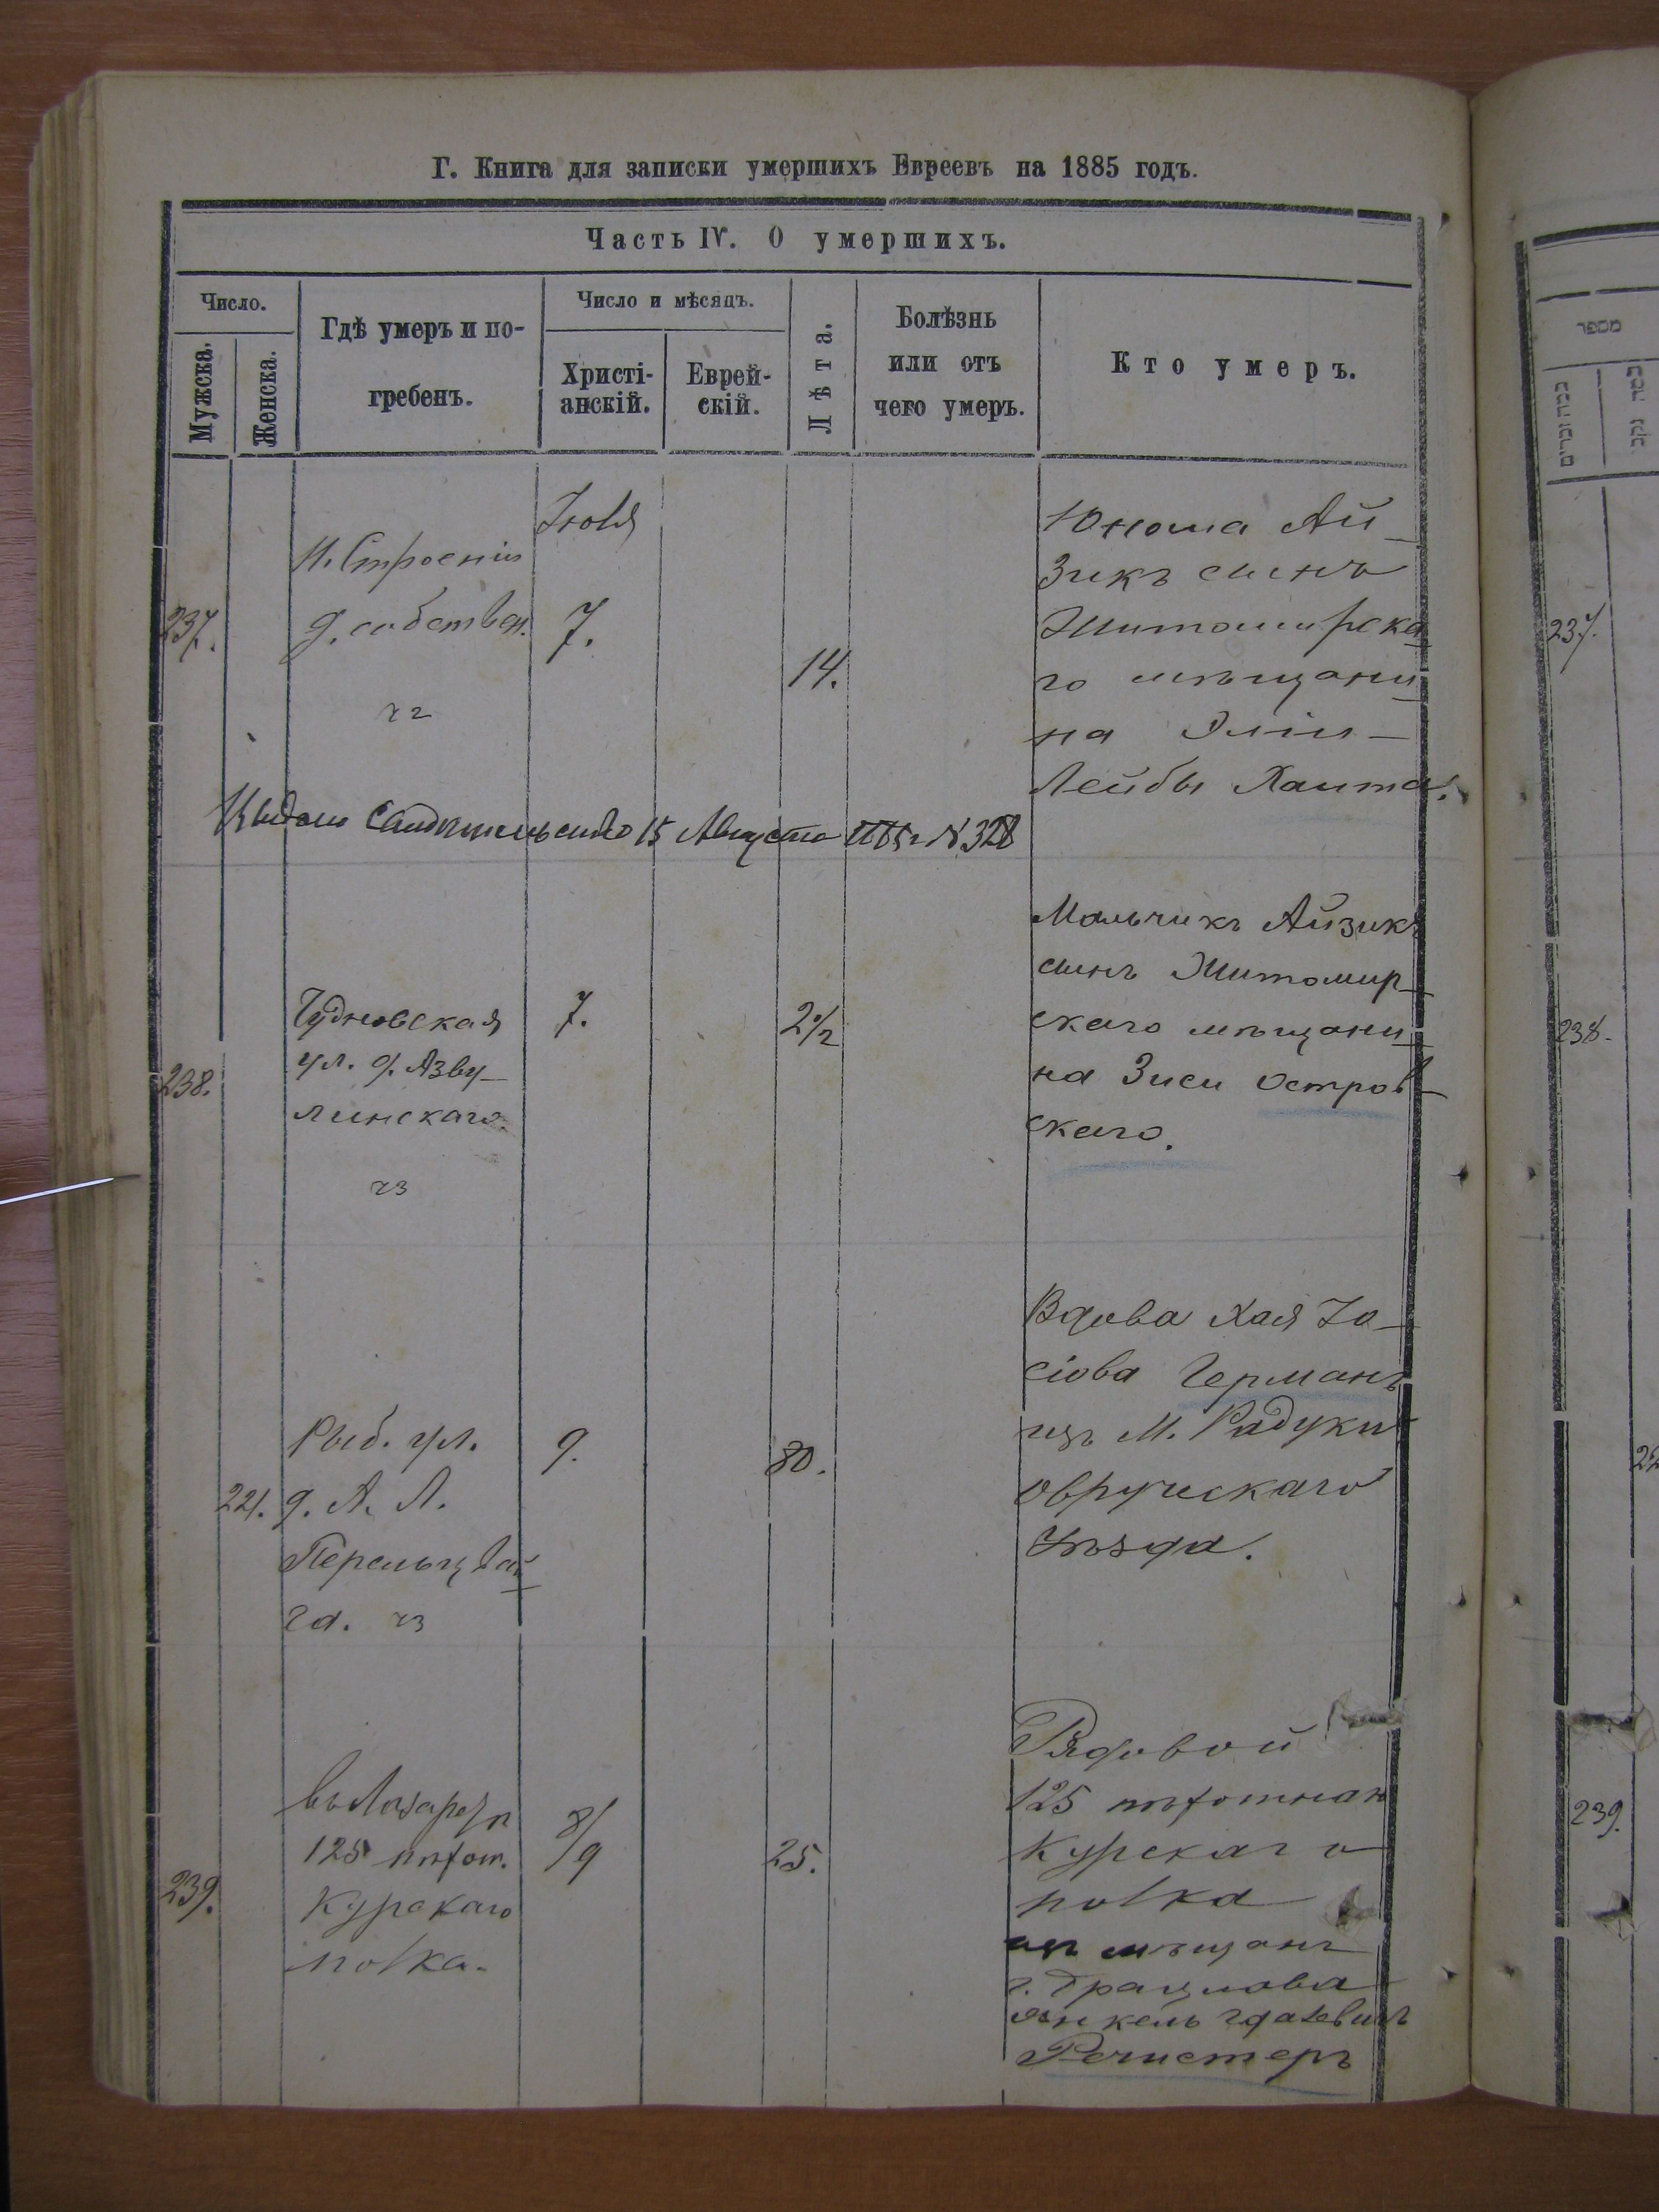 Г. Книга для записки умершихъ Евреевъ на 1885 годъ.
Часть IV. О умершихъ.
Число.
Мужска.
Женска.
Гдѣ умеръ и по-
гребенъ.
Число и мѣсяцъ.
Христі-
анскій.
Еврей-
скій.
Лѣта.
Болѣзнь
или отъ
чего умеръ.
Кто умеръ.
237.
Н. Строенія
д. собствен.
ч 2
Іюля
7.
14.
Юноша Ай-
зикъ сынъ
Житомирска-
го мѣщани-
на Эліи-
Лейбы
15 Августа N 328
238.
Чудновская
ул. д. Азву-
линскаго.
ч3
7.
2 1/2
Мальчикъ Айзикъ
сынъ Житомир-
скаго мѣщани-
на Зиси Остров-
скаго.
221.
Рыб. ул.
д. А. Л.
Перельцвай-
га. ч3
9.
80.
Вдова Хая Іо-
сіова Германъ
изъ М.
Овручскаго
Уѣзда.
239.
въ Лазаретѣ
125 пѣхот.
Курскаго
полка.
8/9
25.
Рядовой
125 пѣхотнаго
Курскаго
полка
изъ мѣщанъ
г. Брацлова
Янкель
Речистеръ
237.
238.
239.